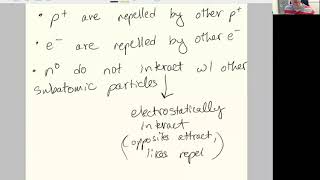 • p⁺ are repelled by other p⁺
• e⁻ are repelled by other e⁻
• n⁰ do not interact w/ other
subatomic particles
electrostatically
interact
(opposites attract,
likes repel)